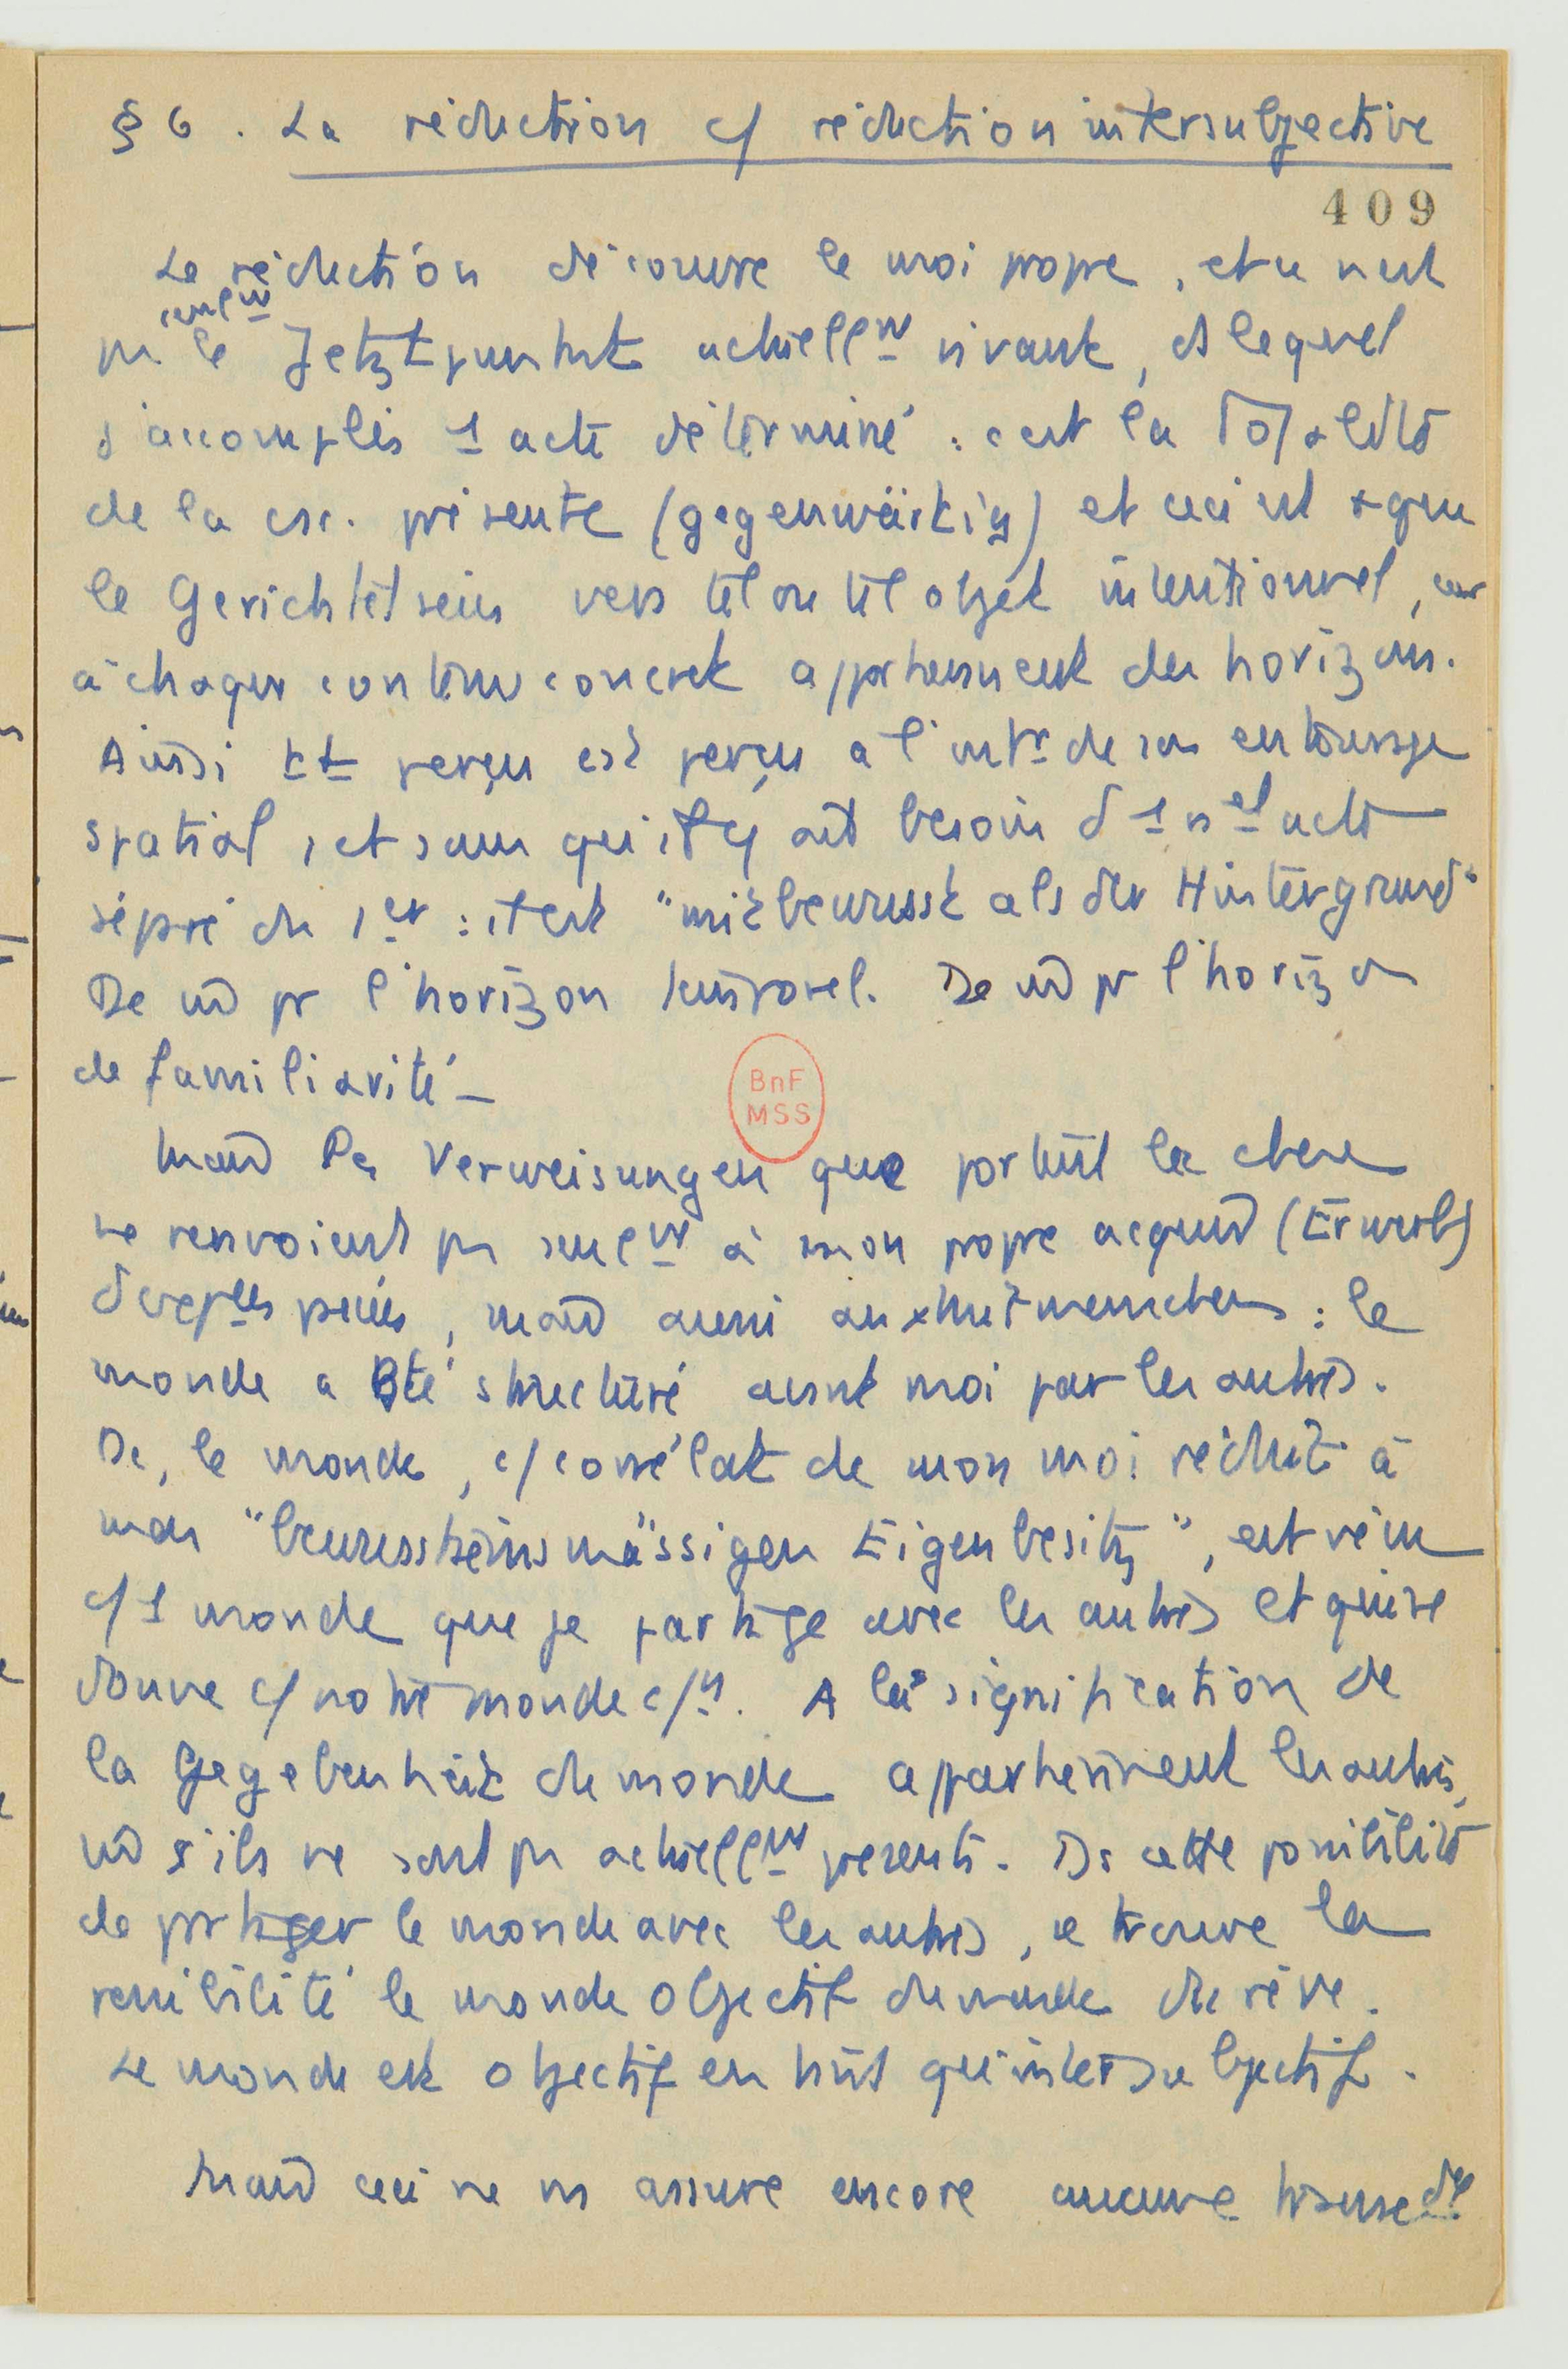 § 6. La réduction c/ réduction intersubjective
409
La réduction découvre le moi propre, et ce n'est
seulmt
pas le Jetztpunkt actuellmt vivant, ds lequel
j'accomplis 1 acte déterminé : c'est la totalité
de la csc. présente (gegenwärtig) et ceci est + que
le Gerichtetsein vers tel ou tel objet intentionnel, car
à chaque contenu concret appartiennent des horizons.
Ainsi tt perçu est perçu à l'intr de son entourage
spatial, et sans qu'il y ait besoin d'1 nel acte
séparé du 1er : il est "mitbewusst als der Hintergrund"
De m̂ pr l'horizon temporel. De m̂ pr l'horizon
de familiarité –
Mais les Verweisungen que portent la chose
ne renvoient pas seulmt à mon propre acquis (Erwerb)
, mais aussi aux Mitmenschen : le
monde a été structuré avant moi par les autres.
Dc, le monde, c/ corrélat de mon moi réduit à
mon "bewusstseinsmässigen Eigenbesitz", est vécu
c/ 1 monde que je partage avec les autres et qui se
donne c/ notre monde c/n. A la signification de
la Gegebenheit du monde appartiennent les autres,
m̂ s'ils ne sont pas actuellmt présents. Ds cette possibilité
de partager le monde avec les autres, se trouve la
le monde objectif du monde du rêve.
Le monde est objectif en tant qu'intersubjectif.
Mais ceci ne ns assure encore aucune